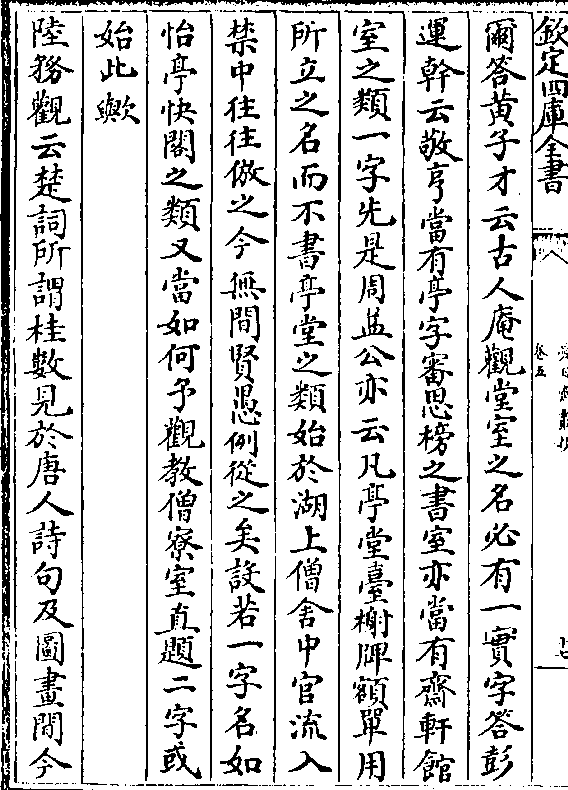 欽定四庫全書
卷五
爾答黃子才云古人庵觀堂室之名必有一實字答彭
運幹云敬亭當有亭字審思榜之書室亦當有齋軒館
室之類一字先是周益公亦云凡亭堂臺榭牌額單用
所立之名而不書亭堂之類始於湖上僧舍中官流入
禁中往往倣之今無間賢愚例從之矣設若一字名如
怡亭快閣之類又當如何予觀教僧寮室直題二字或
始此歟
陸務觀云楚詞所謂桂數見於唐人詩句及圖畫間今